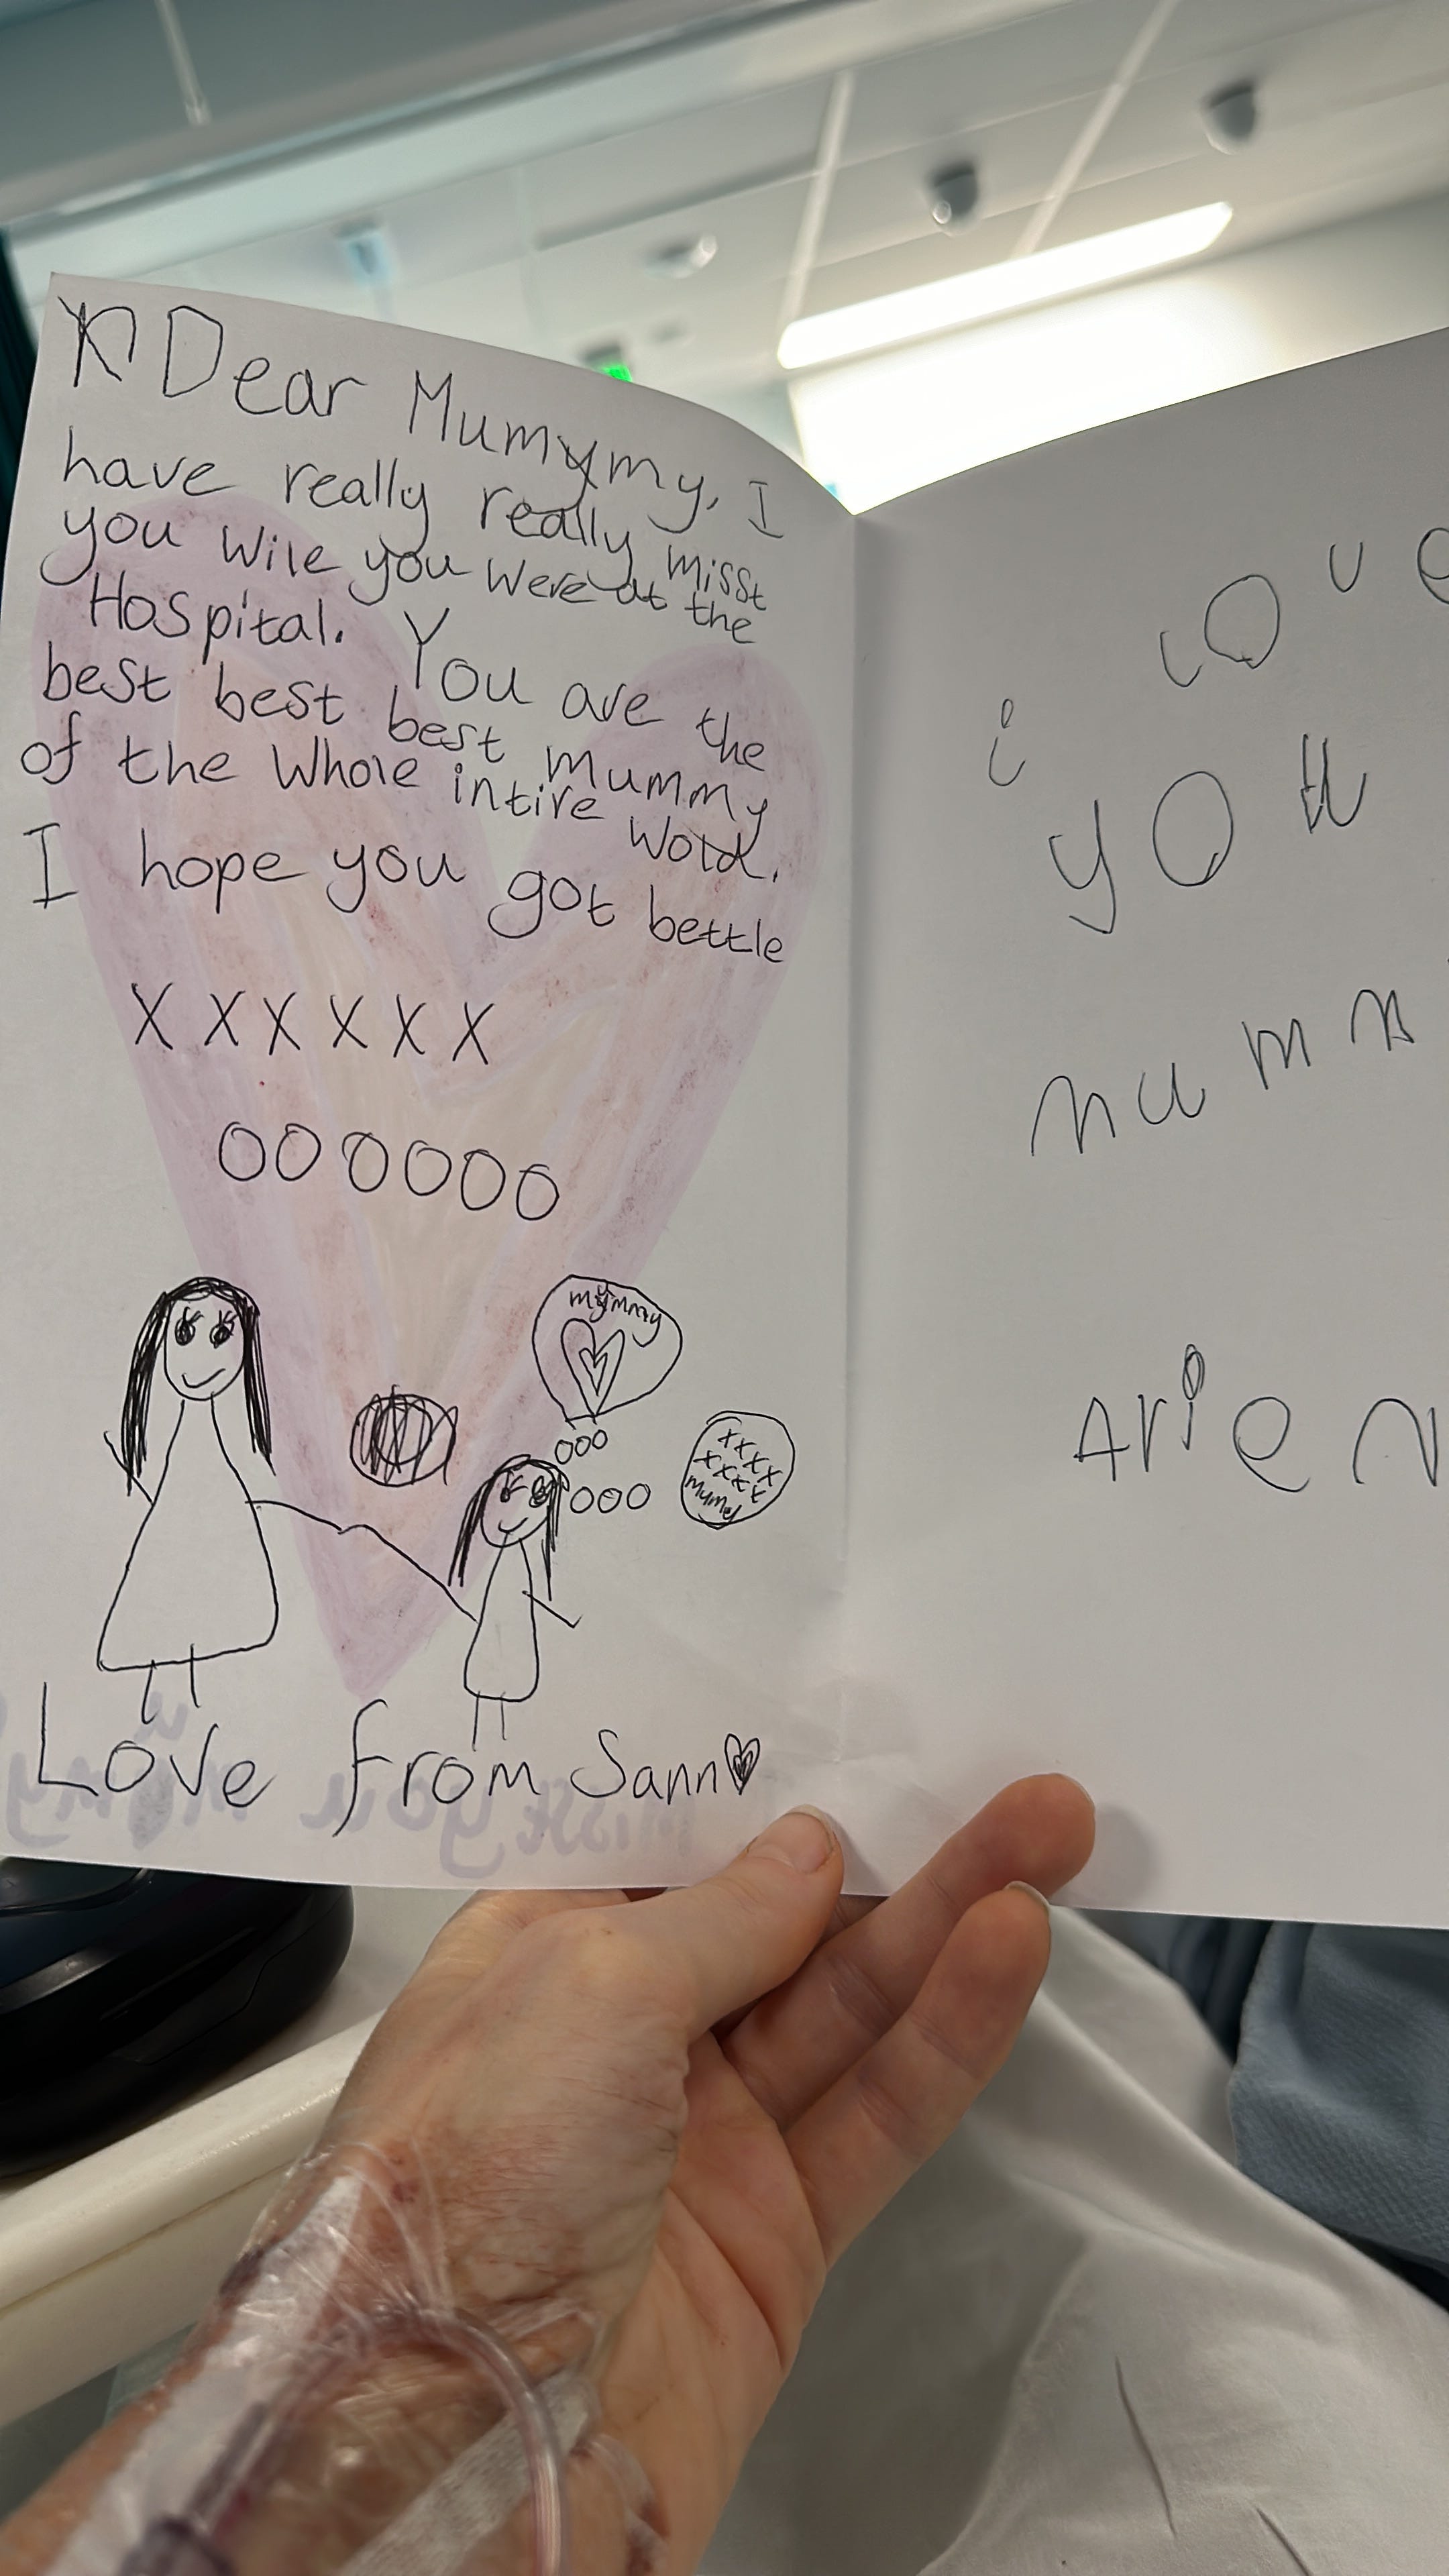 Dear Mummy, I
have really really misst
you wile you were at the
Hospital. You are the
best best best mummy
of the Whole intire wold.
I hope you got bettle
X X X X X X
O O O O O O
mymmy
ooo
ooo
xxxx
xxxx
mumy
Love from Sann
i love
you
mum
Arien
misst you